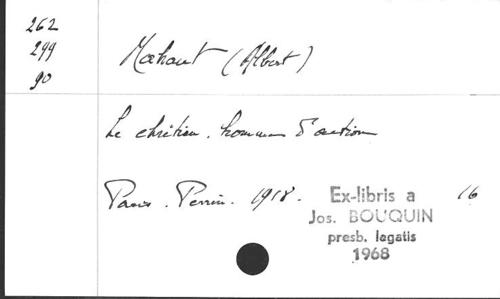 262
299
90
Mahaut (Albert)
Le chrétien. homme d'action
Paris. Perrin. 1918. 16
Ex-libris a
Jos. BOUQUIN
presb. legatis
1968